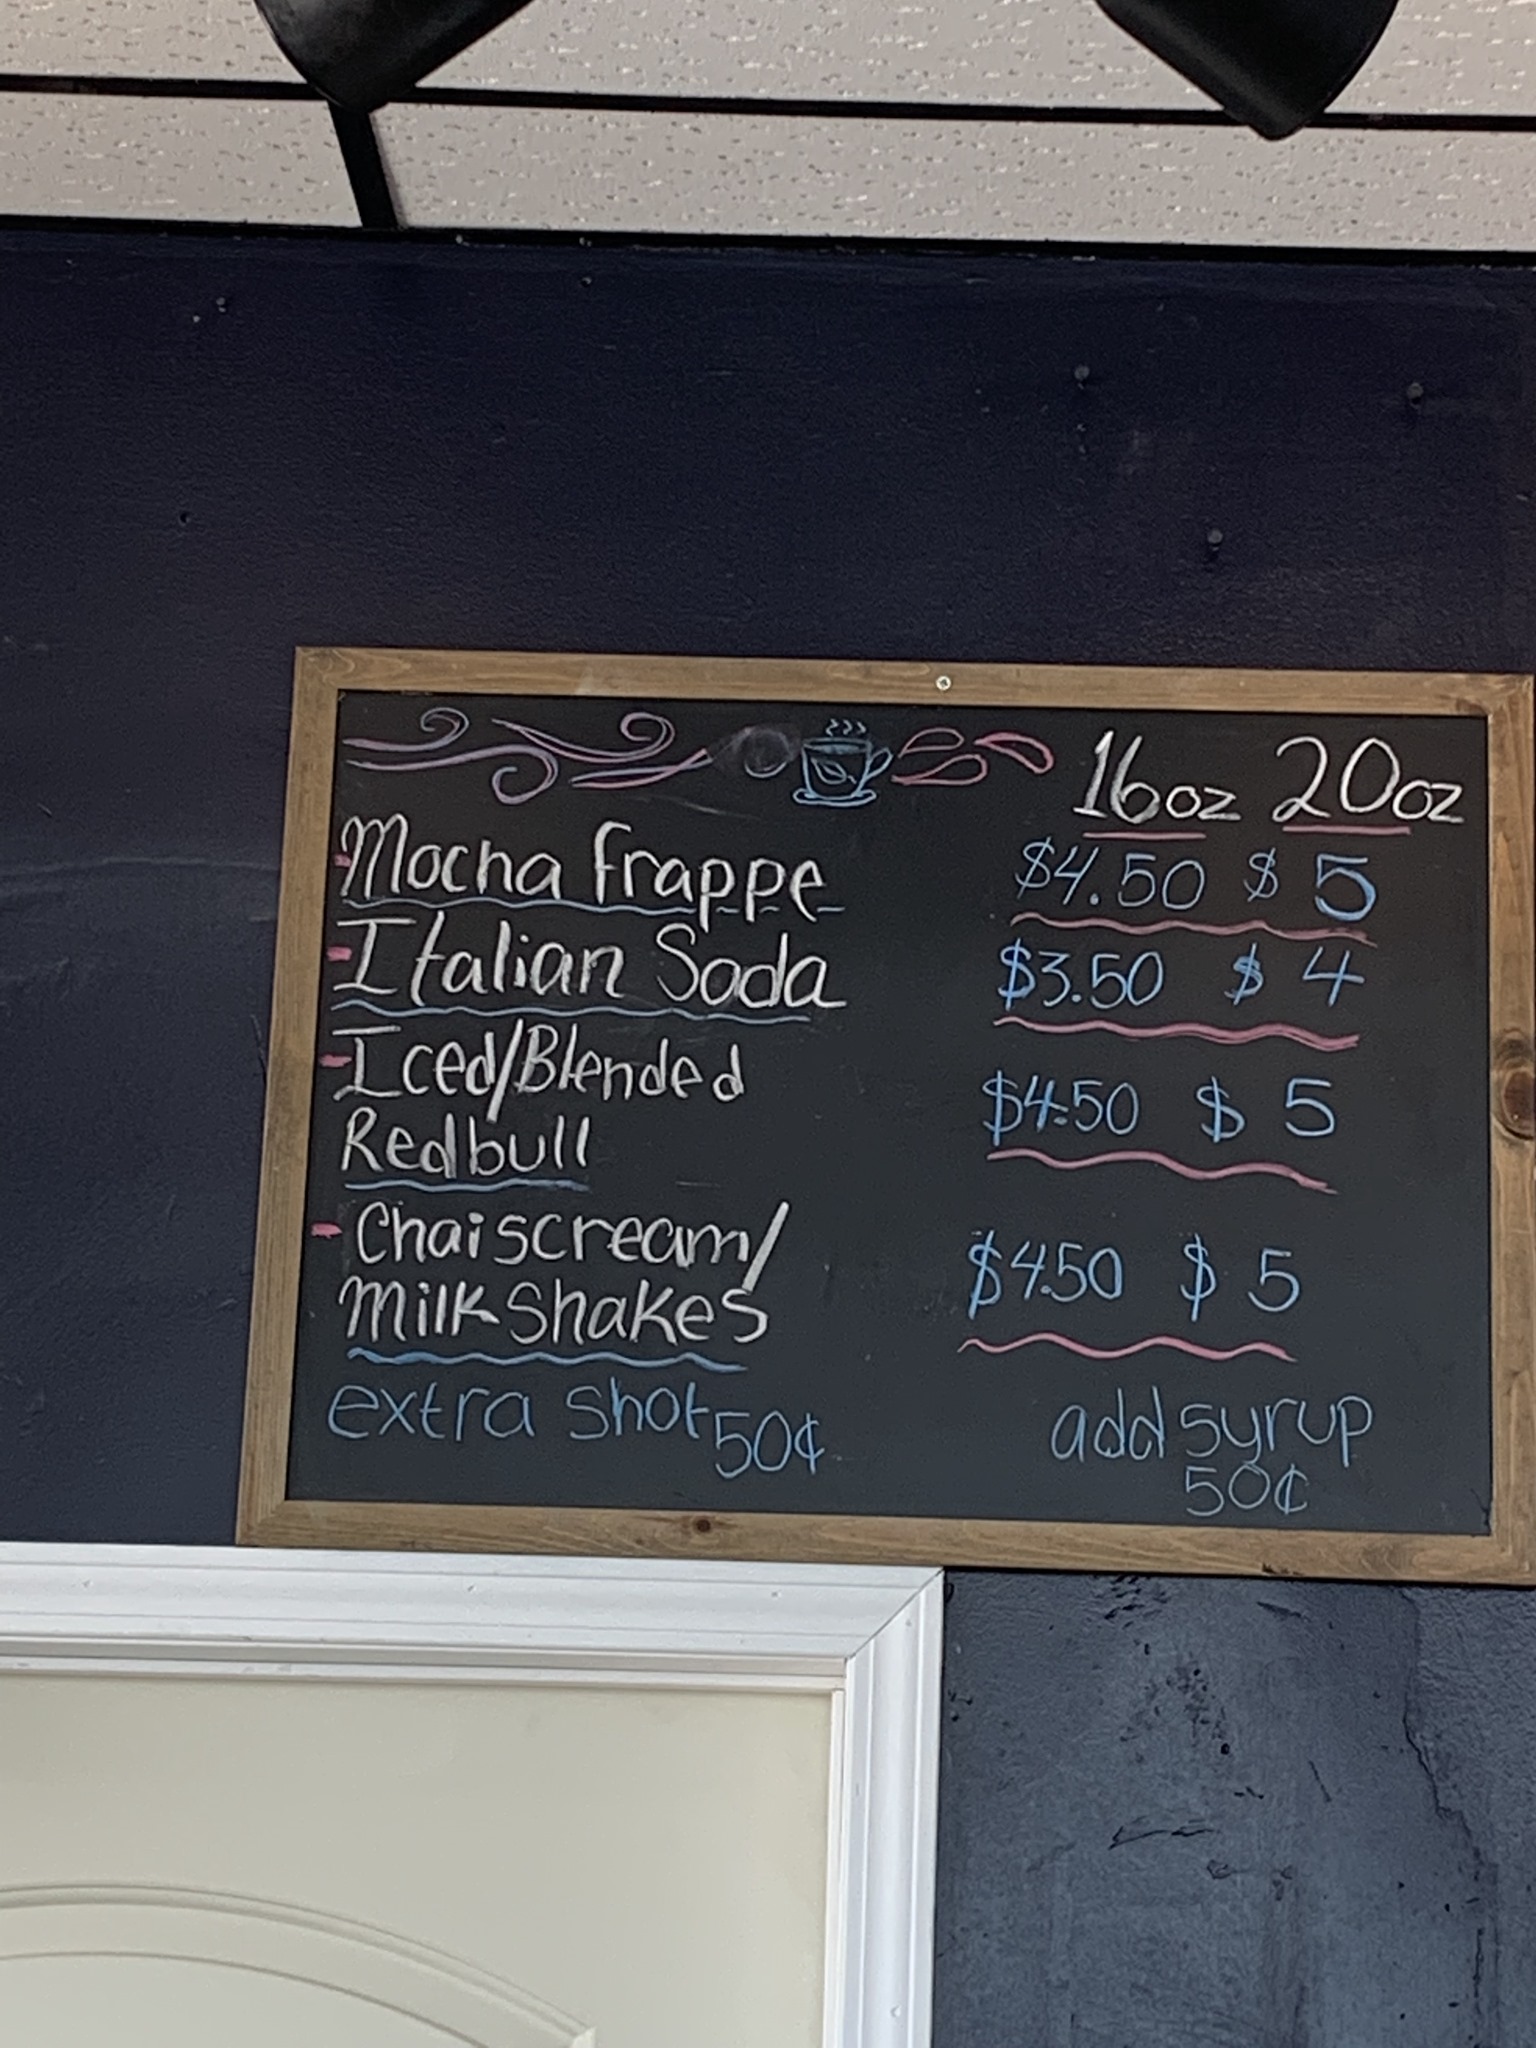 16oz 20oz
-Mocha frappe $4.50 $5
-Italian Soda $3.50 $4
-Iced/Blended
Redbull $4.50 $5
-Chaiscream/
Milkshakes $4.50 $5
extra shot 50¢ add syrup
50¢